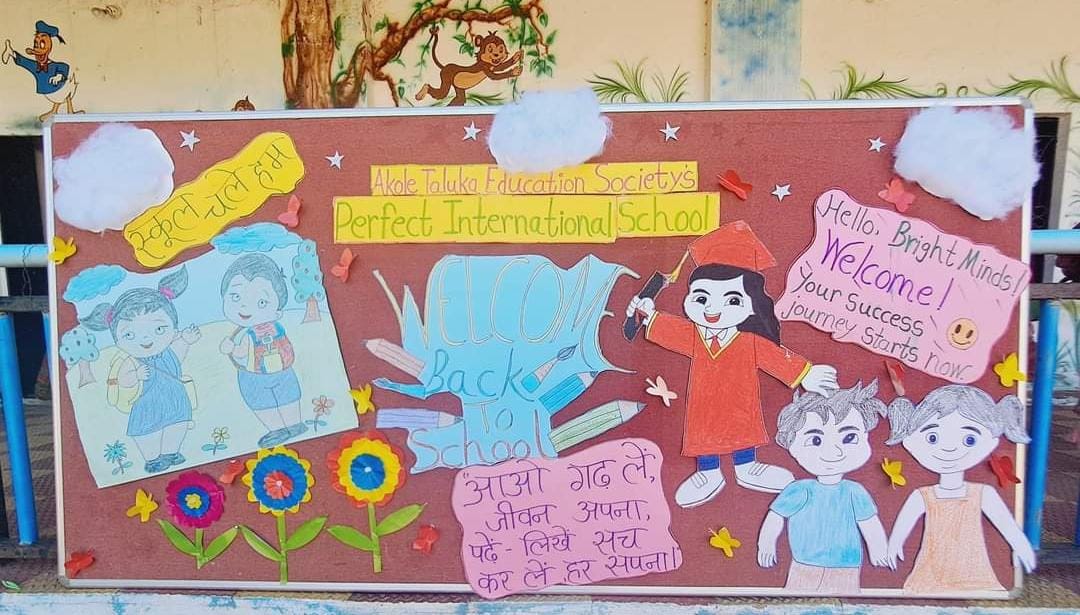 स्कूल चले हम
Akole Taluka Education Society's
Perfect International School
WELCOME
Back
To
School
Hello, Bright Minds!
Welcome!
Your success
journey starts now
"आओ गढ़ लें,
जीवन अपना,
पढ़ें - लिखें सच
कर लें हर सपना।"